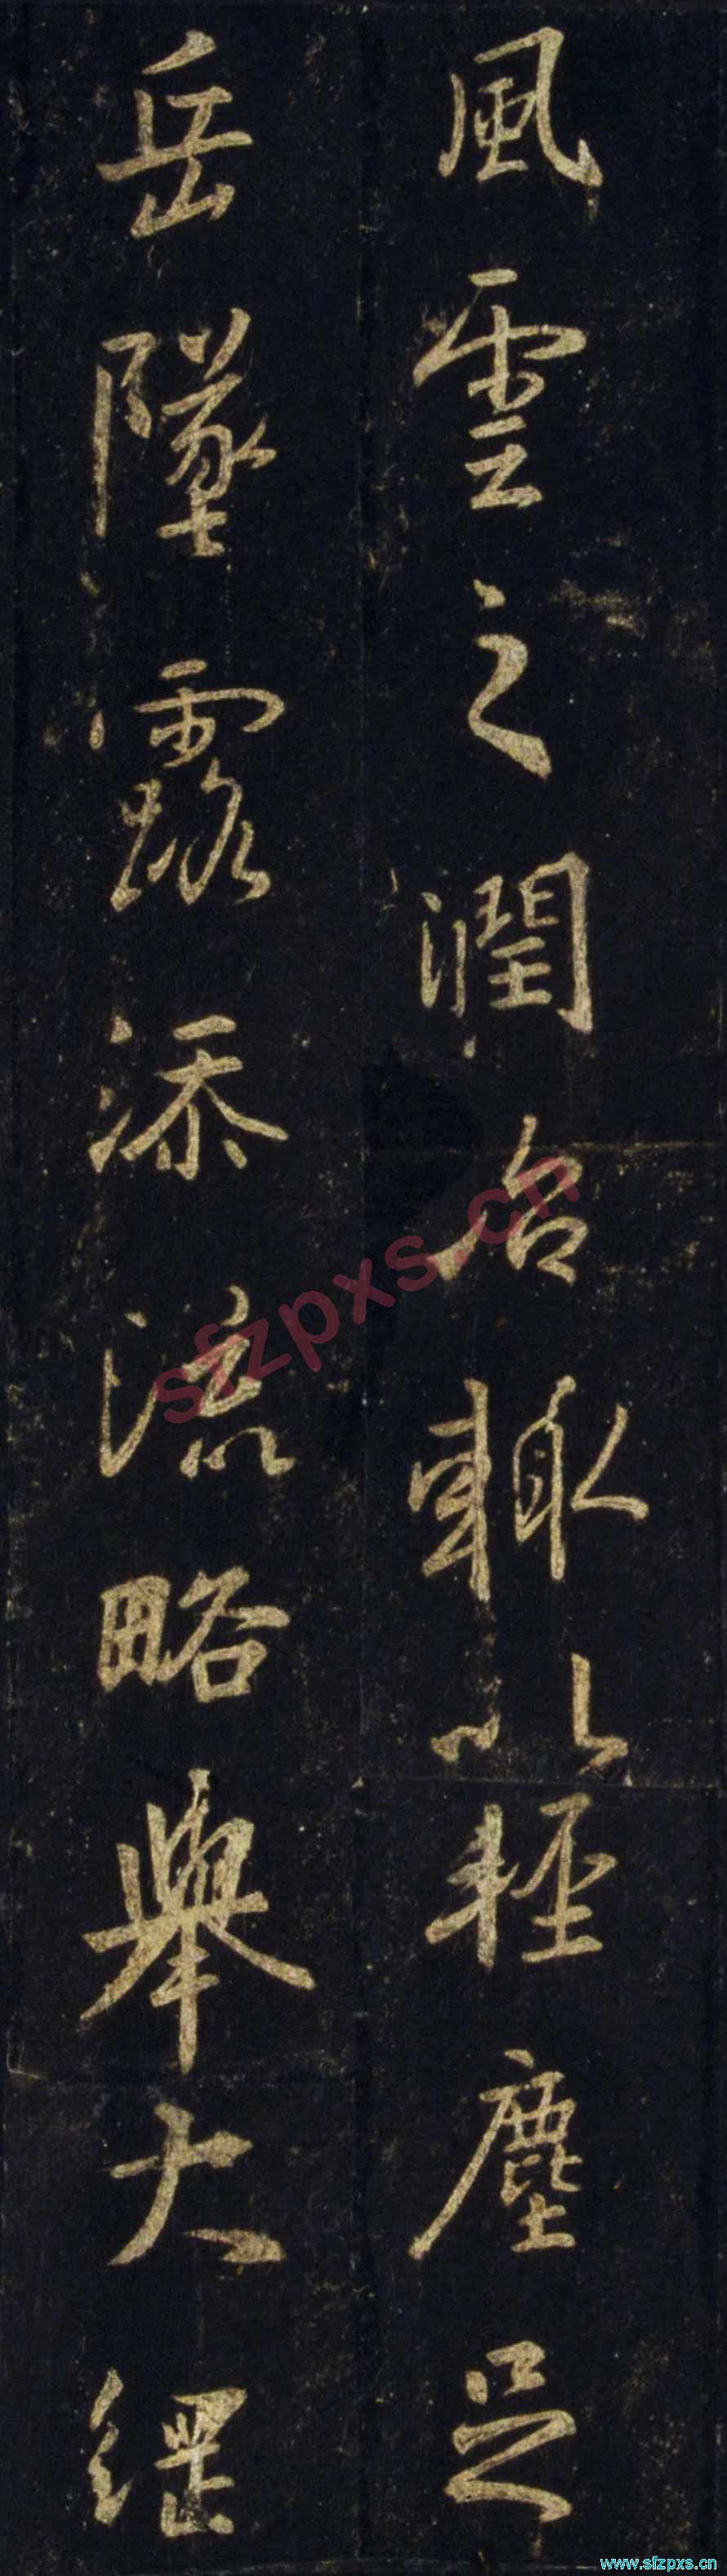 風雲之潤治輒以輕塵足
岳墜露添流略舉大綱
sfzpxs.cn
www.sfzpxs.cn